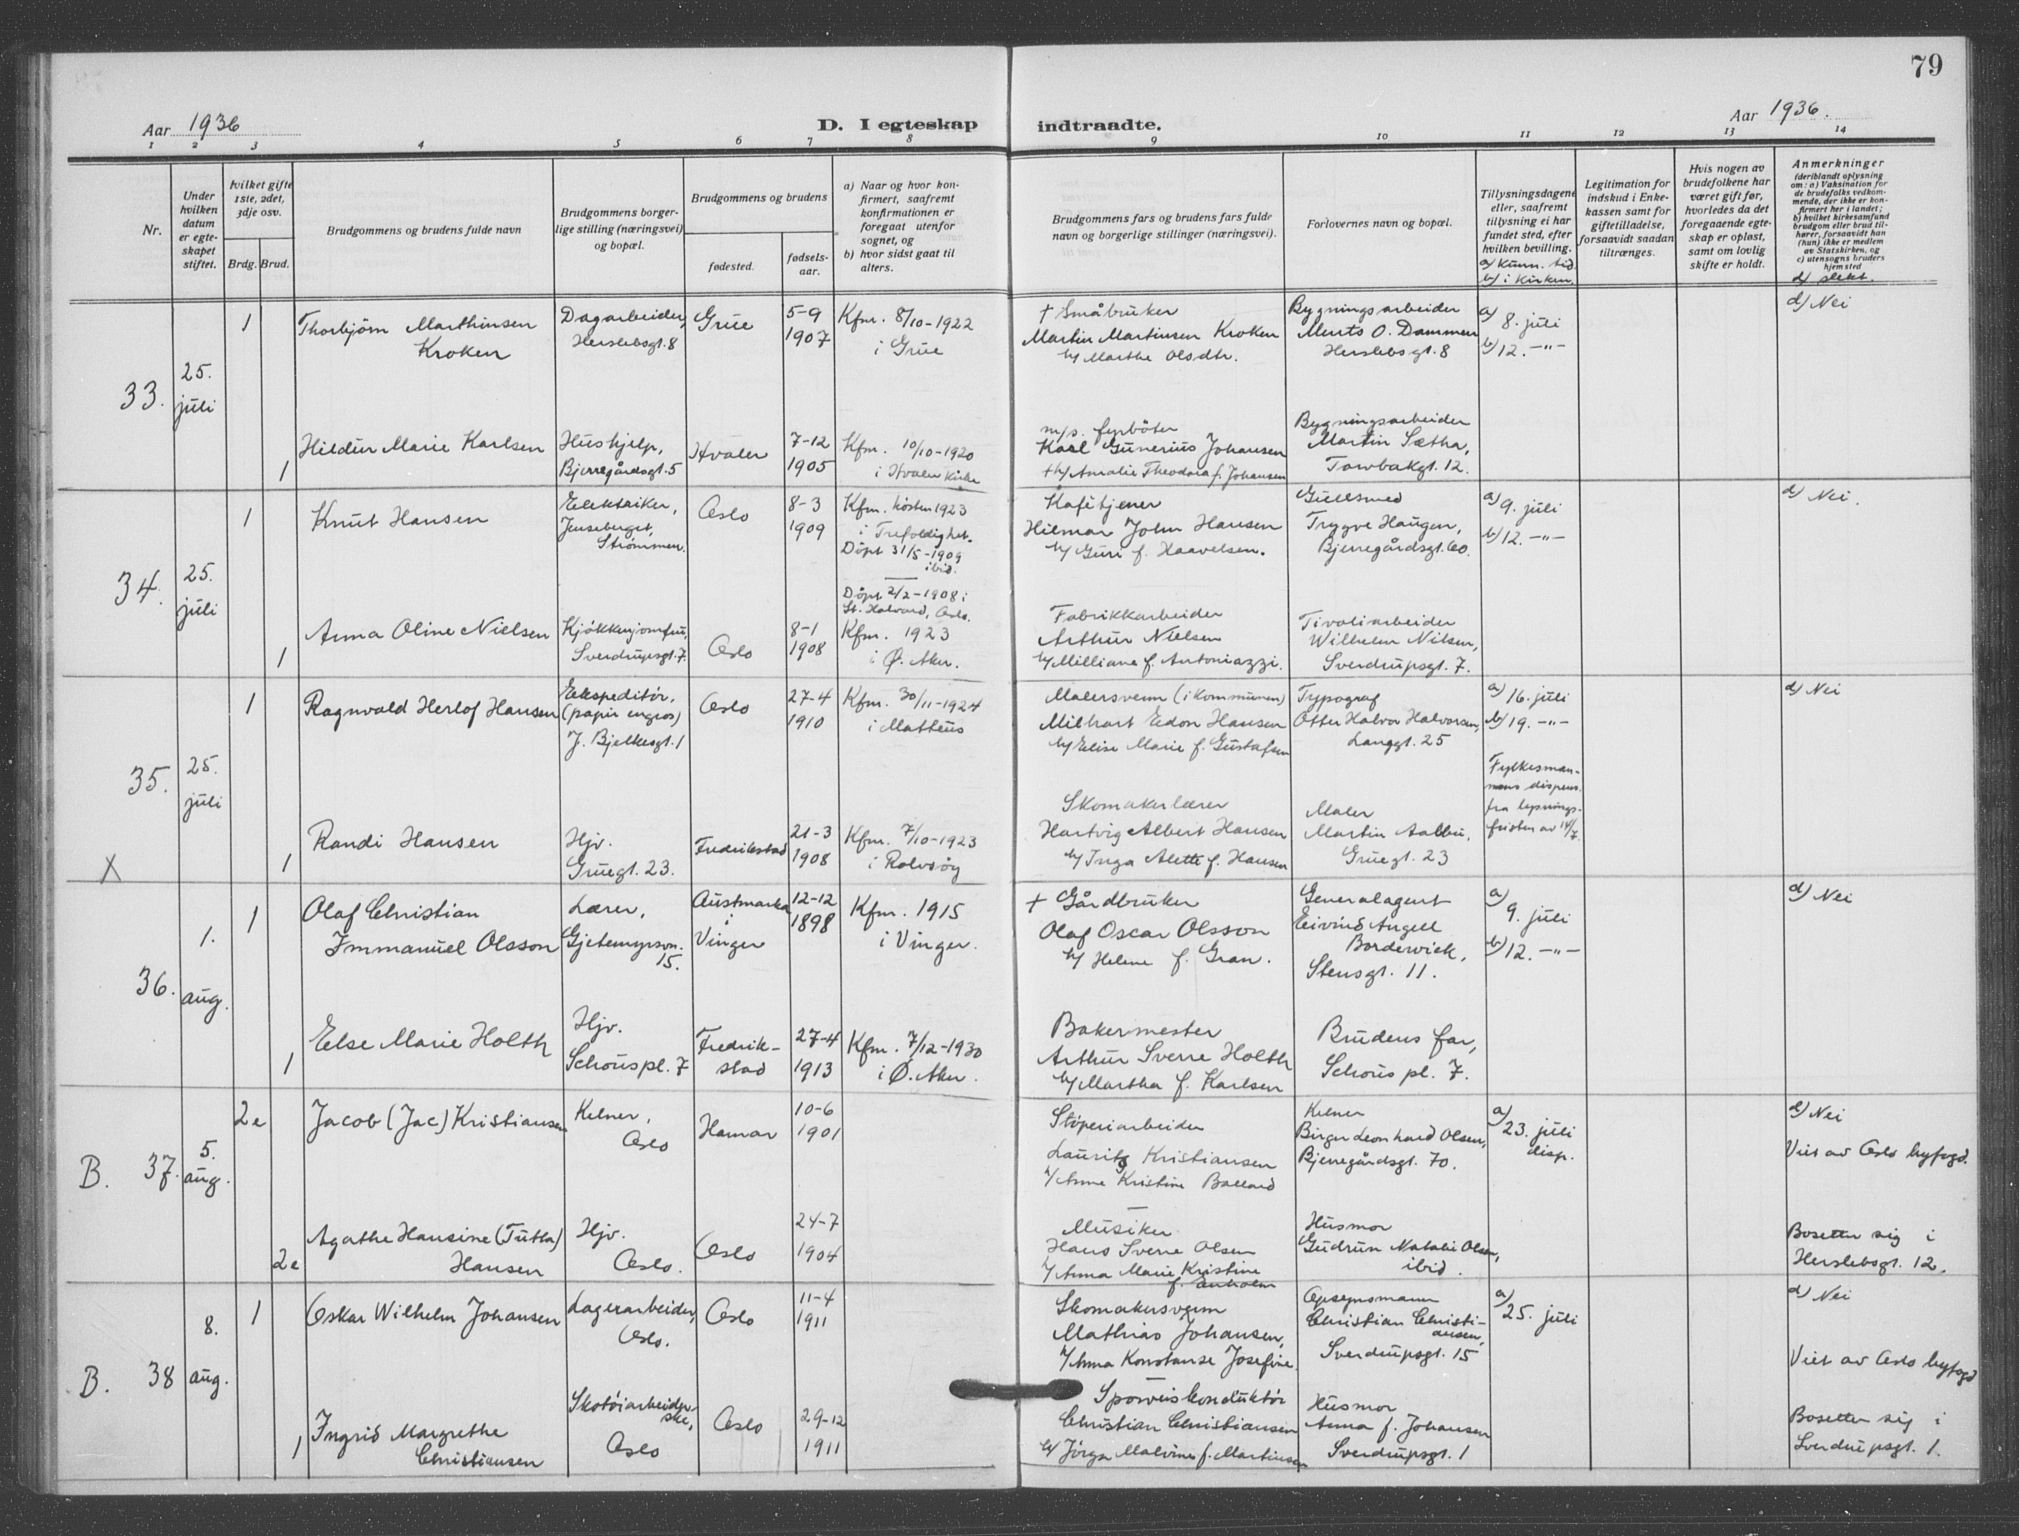 79
Aar 1936
D. I egteskap indtraadte.
Aar 1936.
1 2 3 4 5 6 7 8 9 10 11 12 13 14
Nr.
Under hvilken datum er egteskapet stiftet.
hvilket gifte 1ste, 2det, 3dje osv.
Brdg. Brud.
Brudgommens og brudens fulde navn
Brudgommens borgerlige stilling (næringsvei) og bopæl.
Brudgommens og brudens
fødested.
fødselsaar.
a) Naar og hvor konfirmert, saafremt konfirmationen er foregaat utenfor sognet, og
b) hvor sidst gaat til alters.
Brudgommens fars og brudens fars fulde navn og borgerlige stillinger (næringsvei).
Forlovernes navn og bopæl.
Tillysningsdagene eller, saafremt tillysning ei har fundet sted, efter hvilken bevilling.
a) Kunn. tid.
b) i Kirken.
Legitimation for indskud i Enkekassen samt for giftetilladelse, forsaavidt saadan tiltrænges.
Hvis nogen av brudefolkene har været gift før, hvorledes da det foregaaende egteskap er opløst, samt om lovlig skifte er holdt.
Anmerkninger
(deriblandt oplysning om: a) Vaksination for de brudefolks vedkommende, der ikke er konfirmert her i landet; b) hvilket kirkesamfund brudgom eller brud tilhører, forsaavidt han (hun) ikke er medlem av Statskirken, og c) utensogns bruders hjemsted
d) slekt.
33.
25. juli
1
Thorbjørn Marthinsen
Kroken
Dagarbeider,
Herslebsgt. 8
Grue
5-9
1907
Kfm. 8/10-1922
i Grue
+ Småbruker
Martin Martinsen Kroken
h/ Marthe Olsdtr.
Bygningsarbeider
O. Dammen
Herslebsgt. 8
a) 8. juli
b) 12. -"-
d) Nei
1
Hildur Marie Karlsen
Hushjelp,
Bjerregårdsgt. 5
Hvaler
7-12
1905
Kfm. 10/10-1920
i Hvaler Kirke
m/s. fyrbøter
Karl Gunerius Johansen
+ h/ Amalie Theodora f. Johansen
Bygningsarbeider
Martin Sætha,
gt. 12.
34.
25. juli
1
Knut Hansen
Elektriker,
Jenseberget,
Strømmen.
Oslo
8-3
1909
Kfm. høsten 1923
i Trefoldighet.
Døpt 31/5-1909
ibid.
Kafétjener
Hilmar John Hansen
h/ Guri f. Haavelsen.
Gullsmed
Trygve Haugen,
Bjerregårdsgt. 60.
a) 9. juli
b) 12. -"-
d) Nei.
1
Anna Oline Nielsen
Kjøkkenjomfru,
Sverdrupsgt. 7.
Oslo
8-1
1908
Døpt 2/2-1908 i
St. Halvard, Oslo.
Kfm. 1923
i Ø. Aker.
Fabrikkarbeider
Arthur Nielsen
h/ Milliane f. Antoniazzi.
Tivoliarbeider
Wilhelm Nilsen,
Sverdrupsgt. 7.
35.
25. juli
1
Ragnvald Herlof Hansen
Ekspeditør,
(papir engros)
J. Bjelkesgt. 1
Oslo
27-4
1910
Kfm. 30/11-1924
i Matteus
Malersvenn (i Kommunen)
Milhart Edon Hansen
h/ Elise Marie f. Gustafsen
Typograf
Otter Halvor Halvorsen,
Langgt. 25
a) 16. juli
b) 19. -"-
Fylkesmannens dispens.
fra lysningsfristen av 14/7.
d) Nei
X
1
Randi Hansen
Hjv.
Gruegt. 23.
Fredrikstad
21-3
1908
Kfm. 7/10-1923
i Rolvsøy
Skomakerlærer
Hartvig Albert Hansen
h/ Inga Alette f. Hansen
Maler
Martin Aalbu,
Gruegt. 23
36.
1. aug.
1
Olaf Christian
Immanuel Olsson
Lærer,
Gjetemyrsvn.
15.
Austmarka
i
Vinger
12-12
1898
Kfm. 1915
i Vinger.
+ Gårdbruker
Olaf Oscar Olsson
h/ Helene f. Gran.
Generalagent
Eivind Angell
Borderwick,
Stensgt. 11.
a) 9. juli
b) 12. -"-
d) Nei
1
Else Marie Holth
Hjv.
Schous pl. 7
Fredrikstad
27-4
1913
Kfm. 7/12-1930
i Ø. Aker.
Bakermester
Arthur Sverre Holth
h/ Martha f. Karlsen
Brudens far,
Schous pl. 7.
B. 37.
5. aug.
2e
Jacob (Jac) Kristiansen
Kelner,
Oslo
Hamar
10-6
1901
Støperiarbeider
Lauritz Kristiansen
h/ Anna Kristine Ballard
Kelner
Birger Leonhard Olsen,
Bjerregårdsgt. 70.
a) 23. juli
disp.
d) Nei
Viet av Oslo byfogd.
2e
Agathe Hansine (Tutta)
Hansen
Hjv.
Oslo.
Oslo
24-7
1904
Musiker
Hans Sverre Olsen
h/ Anna Marie Kristine
f. Anholm
Husmor
Gudrun Natalie Olsen,
ibid.
Bosetter sig i
Herslebsgt. 12.
B. 38
8. aug.
1
Oskar Wilhelm Johansen
Lagerarbeider,
Oslo.
Oslo
11-4
1911
Skomakersvenn
Mathias Johansen,
h/ Anna Konstanse Josefine
Opsynsmann
Christian Christiansen,
Sverdrupsgt. 15
a) 25. juli
d) Nei
Viet av Oslo byfogd
1
Ingrid Margrethe
Christiansen
Skotøiarbeiderske,
Oslo
Oslo
29-12
1911
Sporveiskonduktør
Christian Christiansen
h/ Jørga Malvine f. Martinsen
Husmor
Anna f. Johansen
Sverdrupsgt. 1
Bosetter sig i
Sverdrupsgt. 1.